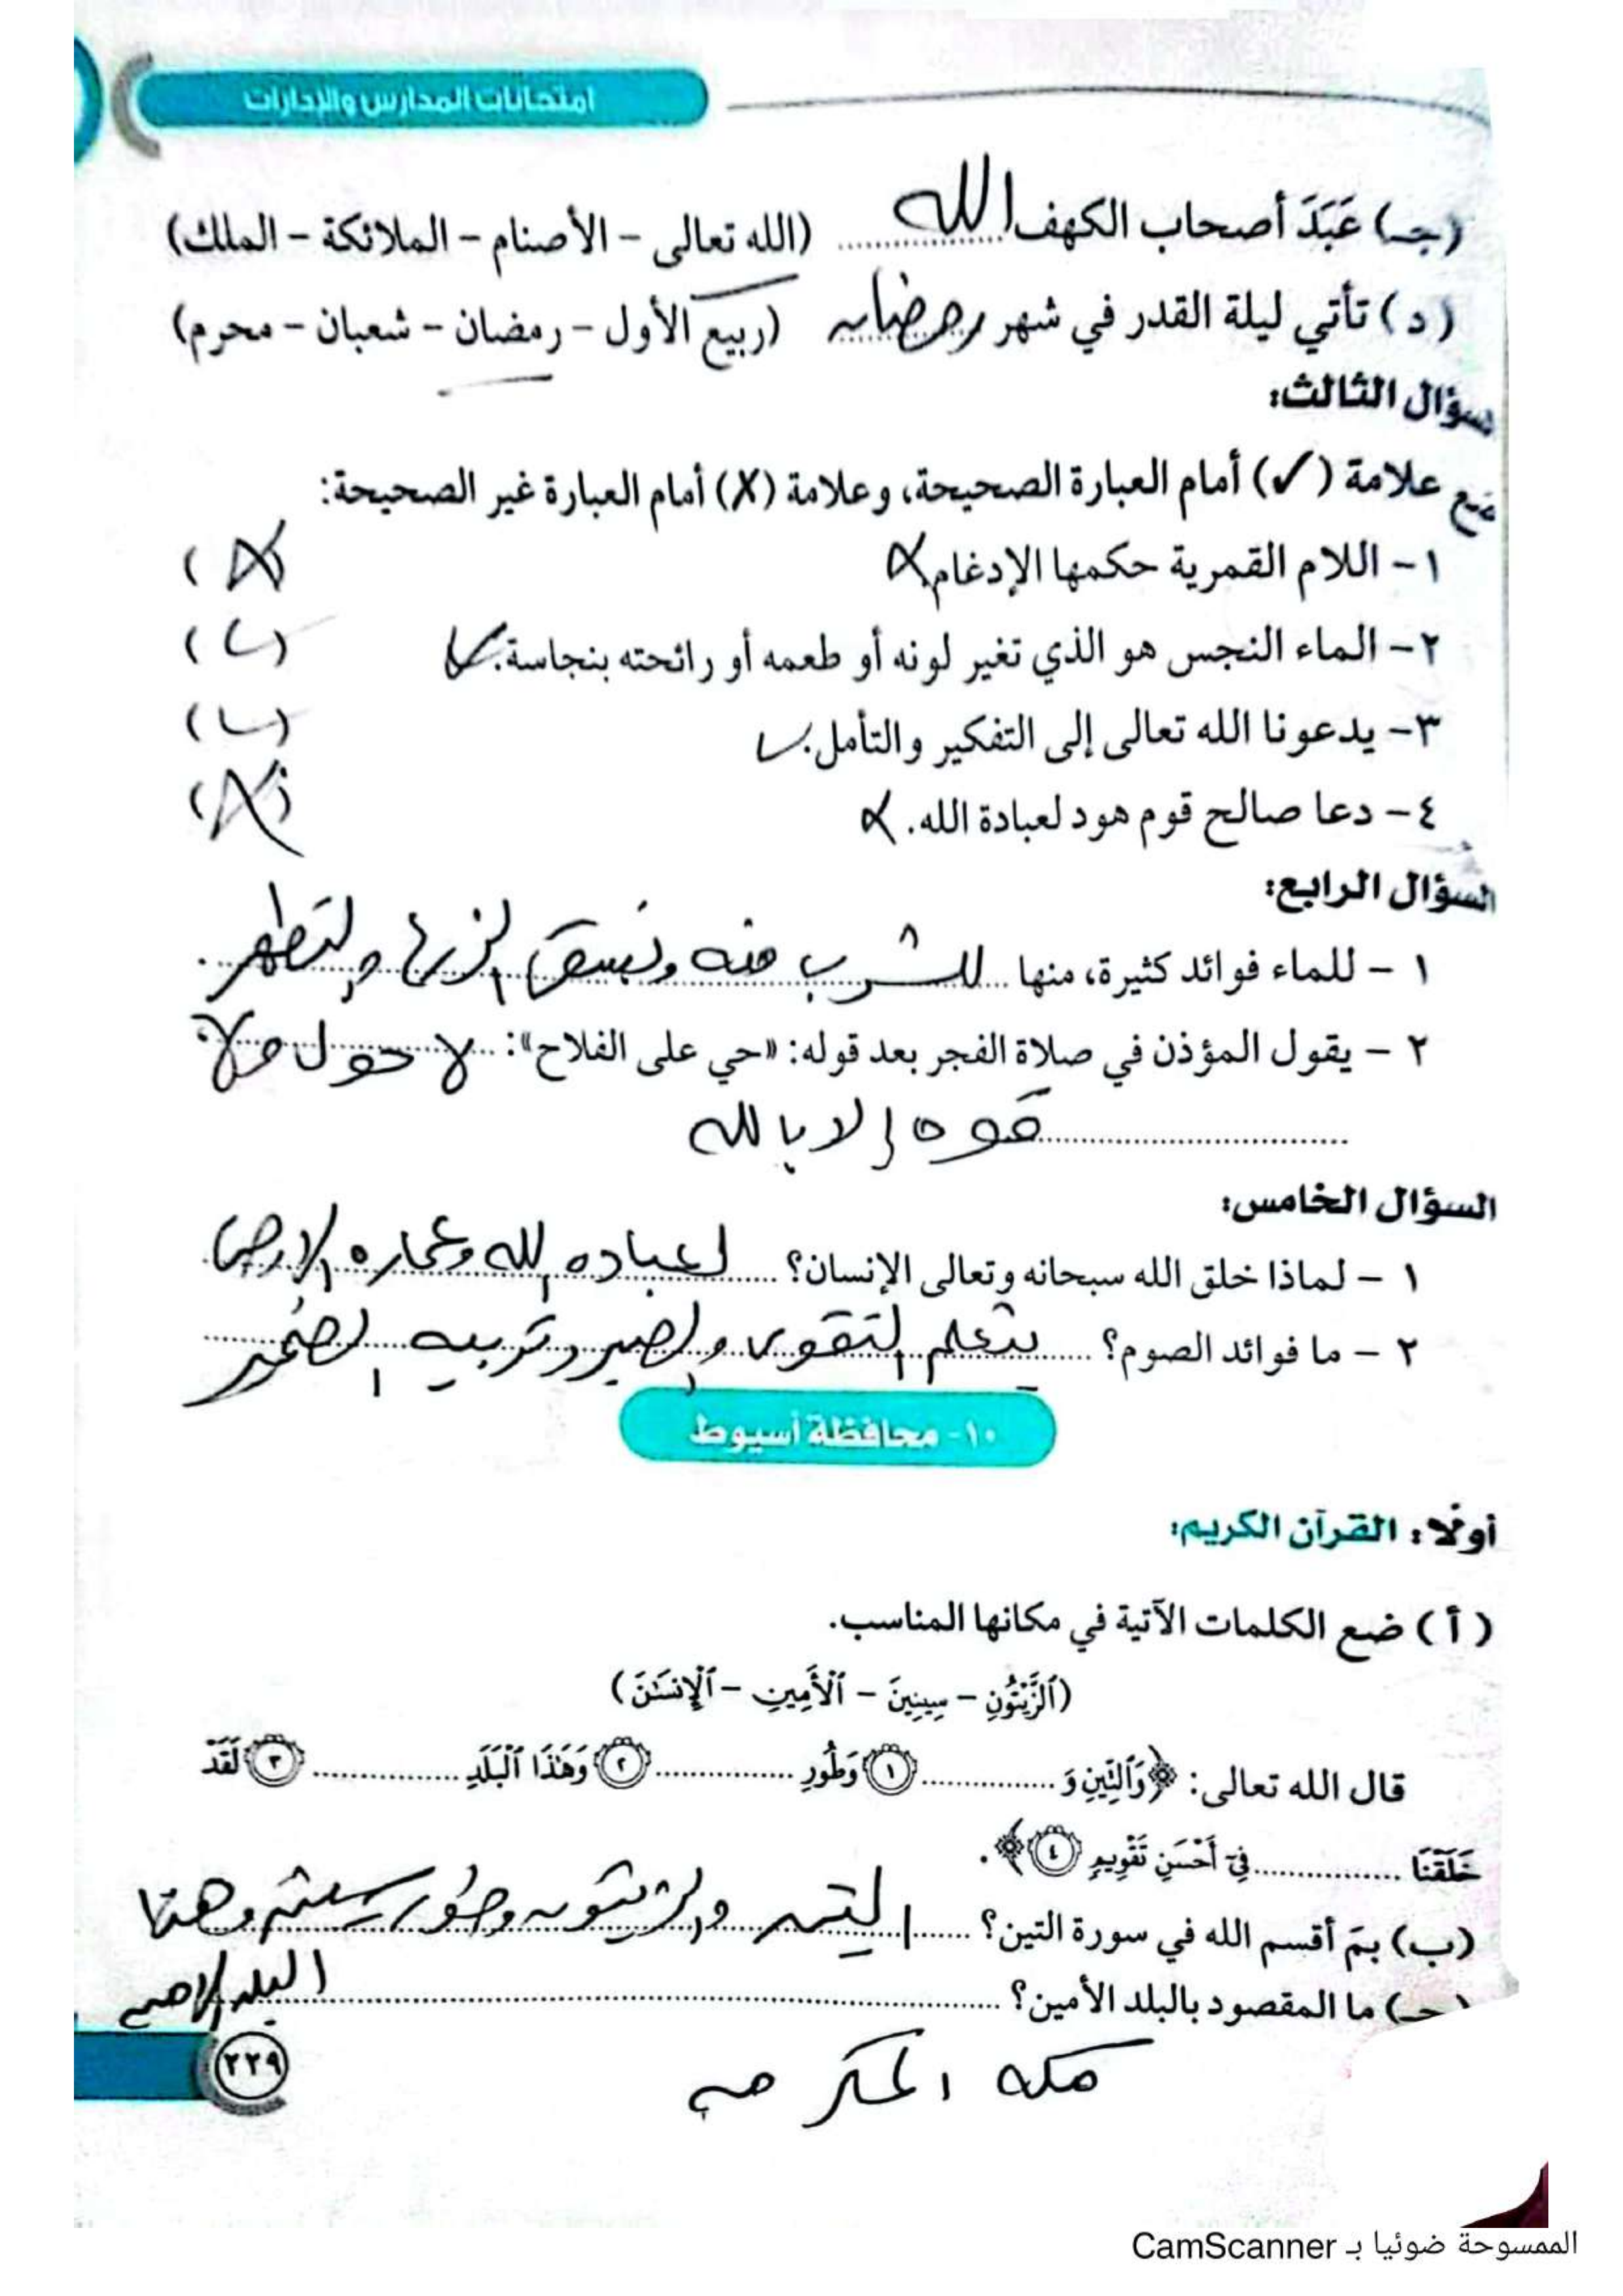 امتحانات المدارس والإدارات
(جـ) عَبَدَ أصحاب الكهف الله (الله تعالى – الأصنام – الملائكة – الملك)
(د) تأتي ليلة القدر في شهر رمضان (ربيع الأول – رمضان – شعبان – محرم)
سؤال الثالث:
ضع علامة (✓) أمام العبارة الصحيحة، وعلامة (X) أمام العبارة غير الصحيحة:
١ – اللام القمرية حكمها الإدغام. X (X)
٢ – الماء النجس هو الذي تغير لونه أو طعمه أو رائحته بنجاسة. ✓ (✓)
٣ – يدعونا الله تعالى إلى التفكير والتأمل. ✓ (✓)
٤ – دعا صالح قوم هود لعبادة الله. X (X)
السؤال الرابع:
١ – للماء فوائد كثيرة، منها للشرب منه ونسقى الزرع والتطهر.
٢ – يقول المؤذن في صلاة الفجر بعد قوله: «حي على الفلاح»: لا حول ولا
قوه إلا بالله
السؤال الخامس:
١ – لماذا خلق الله سبحانه وتعالى الإنسان؟ لعباده الله وعماره الارض
٢ – ما فوائد الصوم؟ يتعلم التقوى والصبر وتربيه الضمير
١٠- محافظة أسيوط
أولًا: القرآن الكريم:
(أ) ضع الكلمات الآتية في مكانها المناسب.
(ٱلزَّيْتُونِ – سِينِينَ – ٱلْأَمِينِ – ٱلْإِنسَٰنَ)
قال الله تعالى: ﴿وَٱلتِّينِ وَ............ ١ وَطُورِ ............ ٢ وَهَٰذَا ٱلْبَلَدِ ............ ٣ لَقَدْ
خَلَقْنَا ............ فِىٓ أَحْسَنِ تَقْوِيمٍ ٤﴾.
(ب) بمَ أقسم الله في سورة التين؟ التين والزيتون وطور سينين وهذا
البلد الامين
(جـ) ما المقصود بالبلد الأمين؟
مكه المكرمه
٢٢٩
الممسوحة ضوئيا بـ CamScanner